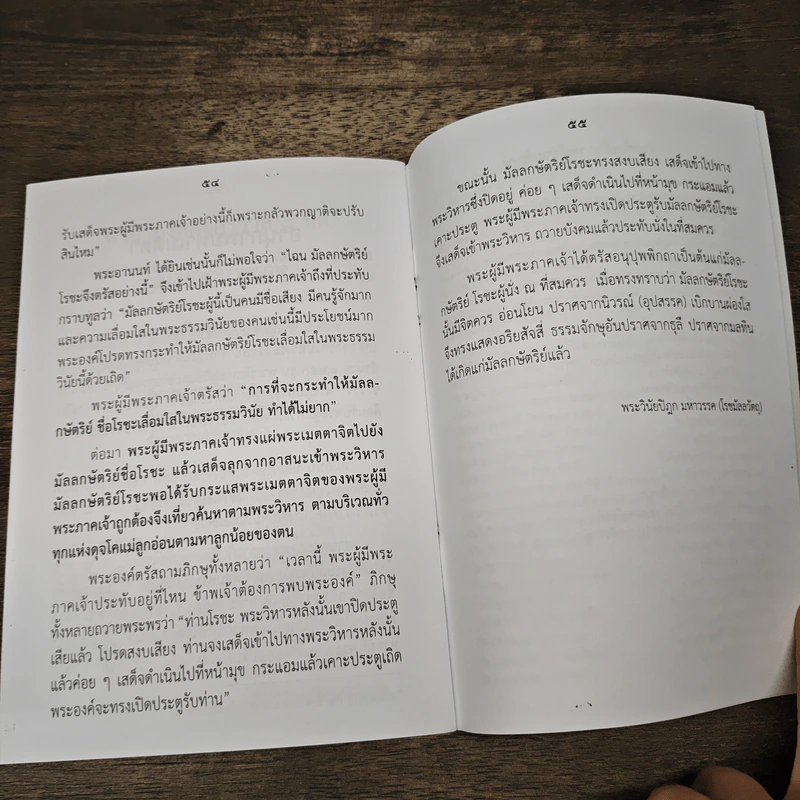 ๕๔
รับเสด็จพระผู้มีพระภาคเจ้าอย่างนี้ก็เพราะกลัวพวกญาติจะปรับ
สินไหม”
พระอานนท์ ได้ยินเช่นนั้นก็ไม่พอใจว่า “ไฉน มัลลกษัตริย์
โรชะจึงตรัสอย่างนี้” จึงเข้าไปเฝ้าพระผู้มีพระภาคเจ้าถึงที่ประทับ
กราบทูลว่า “มัลลกษัตริย์โรชะผู้นี้เป็นคนมีชื่อเสียง มีคนรู้จักมาก
และความเลื่อมใสในพระธรรมวินัยของคนเช่นนี้มีประโยชน์มาก
พระองค์โปรดทรงกระทำให้มัลลกษัตริย์โรชะเลื่อมใสในพระธรรม
วินัยนี้ด้วยเถิด”
พระผู้มีพระภาคเจ้าตรัสว่า “การที่จะกระทำให้มัลล-
กษัตริย์ ชื่อโรชะเลื่อมใสในพระธรรมวินัย ทำได้ไม่ยาก”
ต่อมา พระผู้มีพระภาคเจ้าทรงแผ่พระเมตตาจิตไปยัง
มัลลกษัตริย์ชื่อโรชะ แล้วเสด็จลุกจากอาสนะเข้าพระวิหาร
มัลลกษัตริย์โรชะพอได้รับกระแสพระเมตตาจิตของพระผู้มี
พระภาคเจ้าถูกต้องจึงเที่ยวค้นหาตามพระวิหาร ตามบริเวณทั่ว
ทุกแห่งดุจโคแม่ลูกอ่อนตามหาลูกน้อยของตน
พระองค์ตรัสถามภิกษุทั้งหลายว่า “เวลานี้ พระผู้มีพระ
ภาคเจ้าประทับอยู่ที่ไหน ข้าพเจ้าต้องการพบพระองค์” ภิกษุ
ทั้งหลายถวายพระพรว่า “ท่านโรชะ พระวิหารหลังนั้นเขาปิดประตู
เสียแล้ว โปรดสงบเสียง ท่านจงเสด็จเข้าไปทางพระวิหารหลังนั้น
แล้วค่อย ๆ เสด็จดำเนินไปที่หน้ามุข กระแอมแล้วเคาะประตูเถิด
พระองค์จะทรงเปิดประตูรับท่าน”
๕๕
ขณะนั้น มัลลกษัตริย์โรชะทรงสงบเสียง เสด็จเข้าไปทาง
พระวิหารซึ่งปิดอยู่ ค่อย ๆ เสด็จดำเนินไปที่หน้ามุข กระแอมแล้ว
เคาะประตู พระผู้มีพระภาคเจ้าทรงเปิดประตูรับมัลลกษัตริย์โรชะ
จึงเสด็จเข้าพระวิหาร ถวายบังคมแล้วประทับนั่งในที่สมควร
พระผู้มีพระภาคเจ้าได้ตรัสอนุปุพพิกถาเป็นต้นแก่มัลล-
กษัตริย์ โรชะผู้นั่ง ณ ที่สมควร เมื่อทรงทราบว่า มัลลกษัตริย์โรชะ
นั้นมีจิตควร อ่อนโยน ปราศจากนิวรณ์ (อุปสรรค) เบิกบานผ่องใส
จึงทรงแสดงอริยสัจสี่ ธรรมจักษุอันปราศจากธุลี ปราศจากมลทิน
ได้เกิดแก่มัลลกษัตริย์แล้ว
พระวินัยปิฎก มหาวรรค (โรชมัลลวัตถุ)